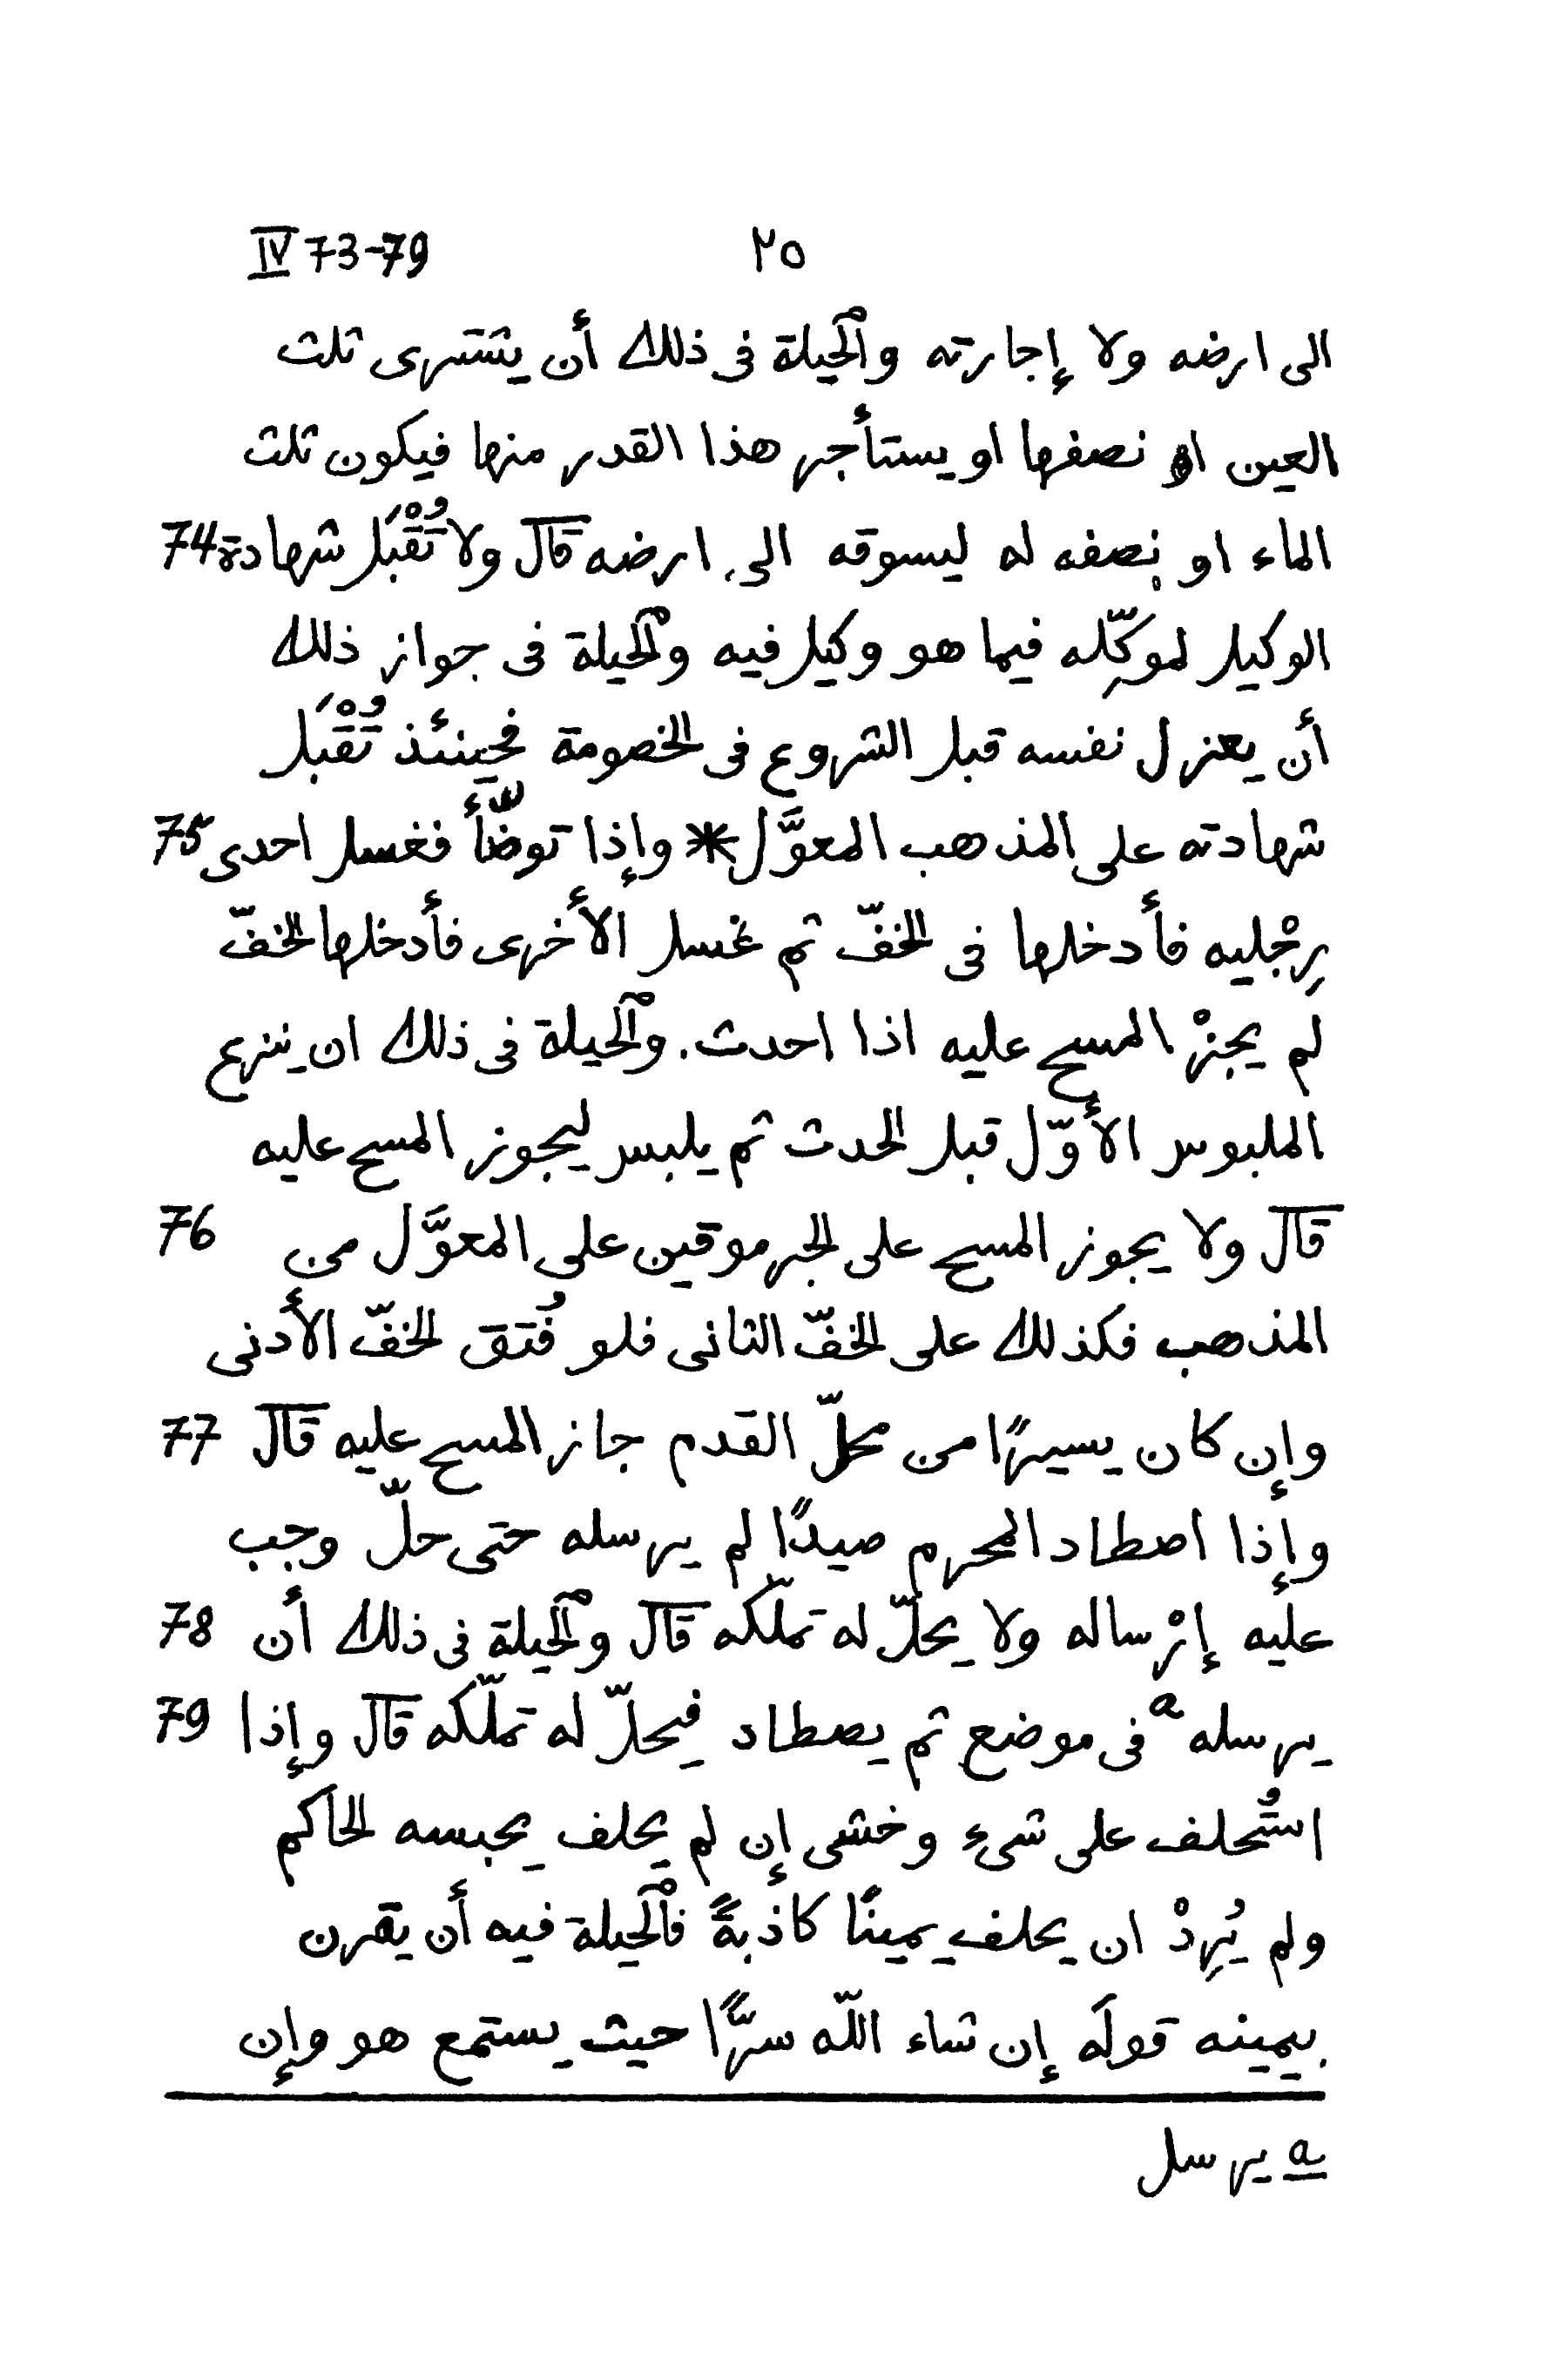 IV 73-79 ٢٥
الى ارضه ولا إجارته وٱلحيلة فى ذلك أن يشترى ثلث
العين او نصفها او يستأجر هذا القدر منها فيكون ثلث
الماء او نصفه له ليسوقه الى ارضه قال ولا تُقْبَل شهادة 74
الوكيل لموكِّله فيما هو وكيل فيه وٱلحيلة فى جواز ذلك
أن يعزل نفسه قبل الشروع فى الخصومة فحينئذ تُقْبَل
شهادته على المذهب المعوَّل * وإذا توضّأ فغسل احدى 75
رِجْليه فأدخلها فى الخفّ ثم غسل الأخرى فأدخلها الخفّ
لم يجزْ المسح عليه اذا احدث. وٱلحيلة فى ذلك ان ينزع
الملبوس الأوّل قبل الحدث ثم يلبس ليجوز المسح عليه
قال ولا يجوز المسح على الجرموقين على المعوَّل من 76
المذهب فكذلك على الخفّ الثانى فلو فُتق الخفّ الأدنى
وإن كان يسيرًا من محلّ القدم جاز المسح عليه قال 77
وإذا اصطاد المحرم صيدًا لم يرسله حتى حلّ وجب
عليه إرْساله ولا يحلّ له تملّكه قال وٱلحيلة فى ذلك أن 78
يرسله a فى موضع ثم يصطاد فيحلّ له تملّكه قال وإذا 79
استُحلف على شىء وخشى إن لم يحلف يحبسه الحاكم
ولم يُرِدْ ان يحلف يمينًا كاذبةً فٱلحيلة فيه أن يقرن
بيمينه قولَه إن شاء اللّه سرًّا حيث يستمع هو وإن
a يرسل